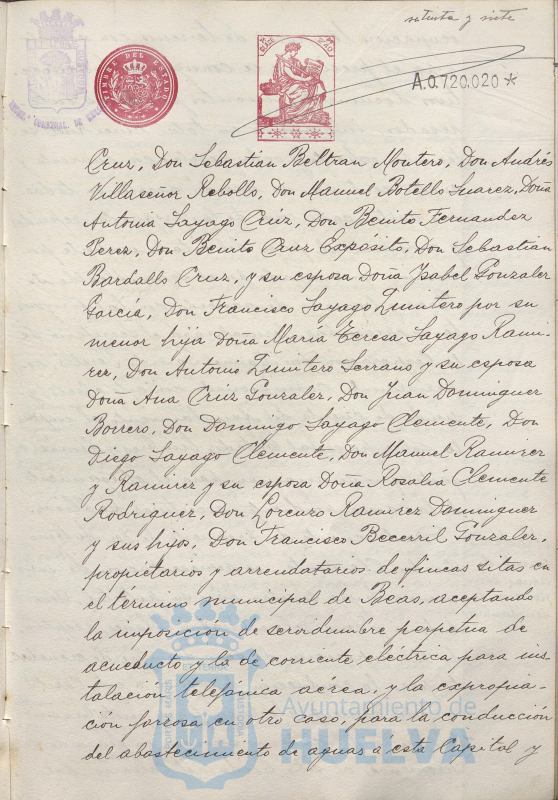 setenta y siete
TIMBRE DEL ESTADO
A.0.720.020 *
Cruz, Don Sebastian Beltran Montero, Don Andrés
Villaseñor Rebollo, Don Manuel Botello Suarez, Doña
Antonia Sayago Cruz, Don Benito Fernandez
Perez, Don Benito Cruz Expósito, Don Sebastian
Bardallo Cruz, y su esposa Doña Ysabel Gonzalez
García, Don Francisco Sayago Quintero por su
menor hija Doña María Teresa Sayago Rami-
rez, Don Antonio Quintero Serrano y su esposa
Doña Ana Cruz Gonzalez, Don Juan Dominguez
Borrero, Don Domingo Sayago Clemente, Don
Diego Sayago Clemente, Don Manuel Ramirez
y Ramirez y su esposa Doña Rosalía Clemente
Rodriguez, Don Lorenzo Ramirez Dominguez
y sus hijos, Don Francisco Becerril Gonzalez,
propietarios y arrendatarios de fincas sitas en
el término municipal de Beas, aceptando
la imposición de servidumbre perpetua de
acueducto y la de corriente eléctrica para ins-
talación telefónica aérea, y la expropia-
ción forzosa en otro caso, para la conducción
del abastecimiento de aguas a esta Capital y
Ayuntamiento de
HUELVA